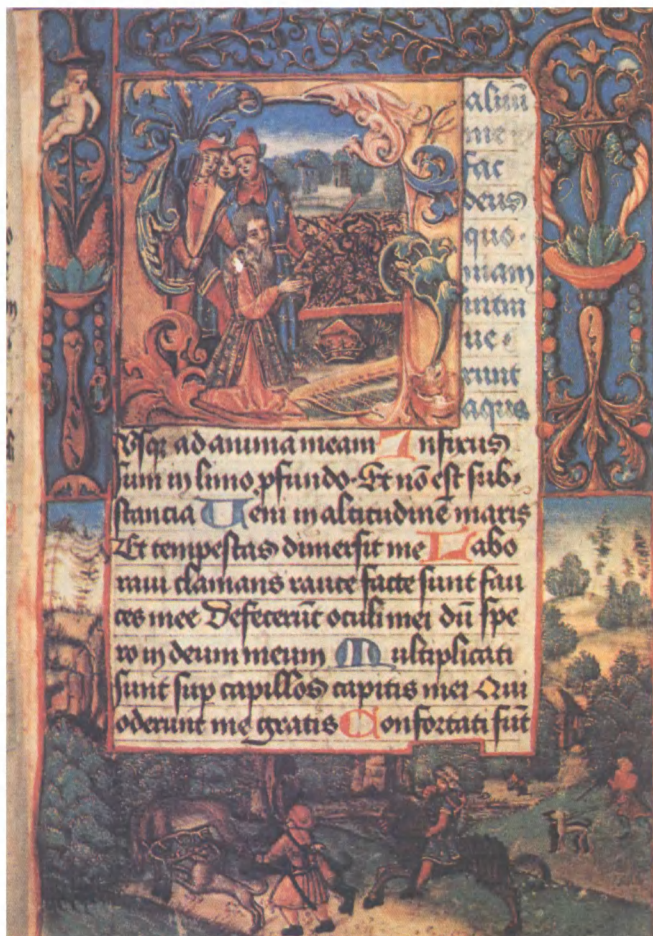 alūū
me
fac
deus
quo-
niam
intra
ue-
runt
aque
Vsq; ad animā meam Infixus
sum in limo pfundo Et nō est sub-
stancia Ueni in altitudinē maris
Et tempestas dimersit me Labo
raui clamans rauce facte sunt fau
ces mee Defecerūt oculi mei dū spe
ro in deum meum Multiplicati
sunt sup capillos capitis mei Qui
oderunt me gratis Confortati sūt